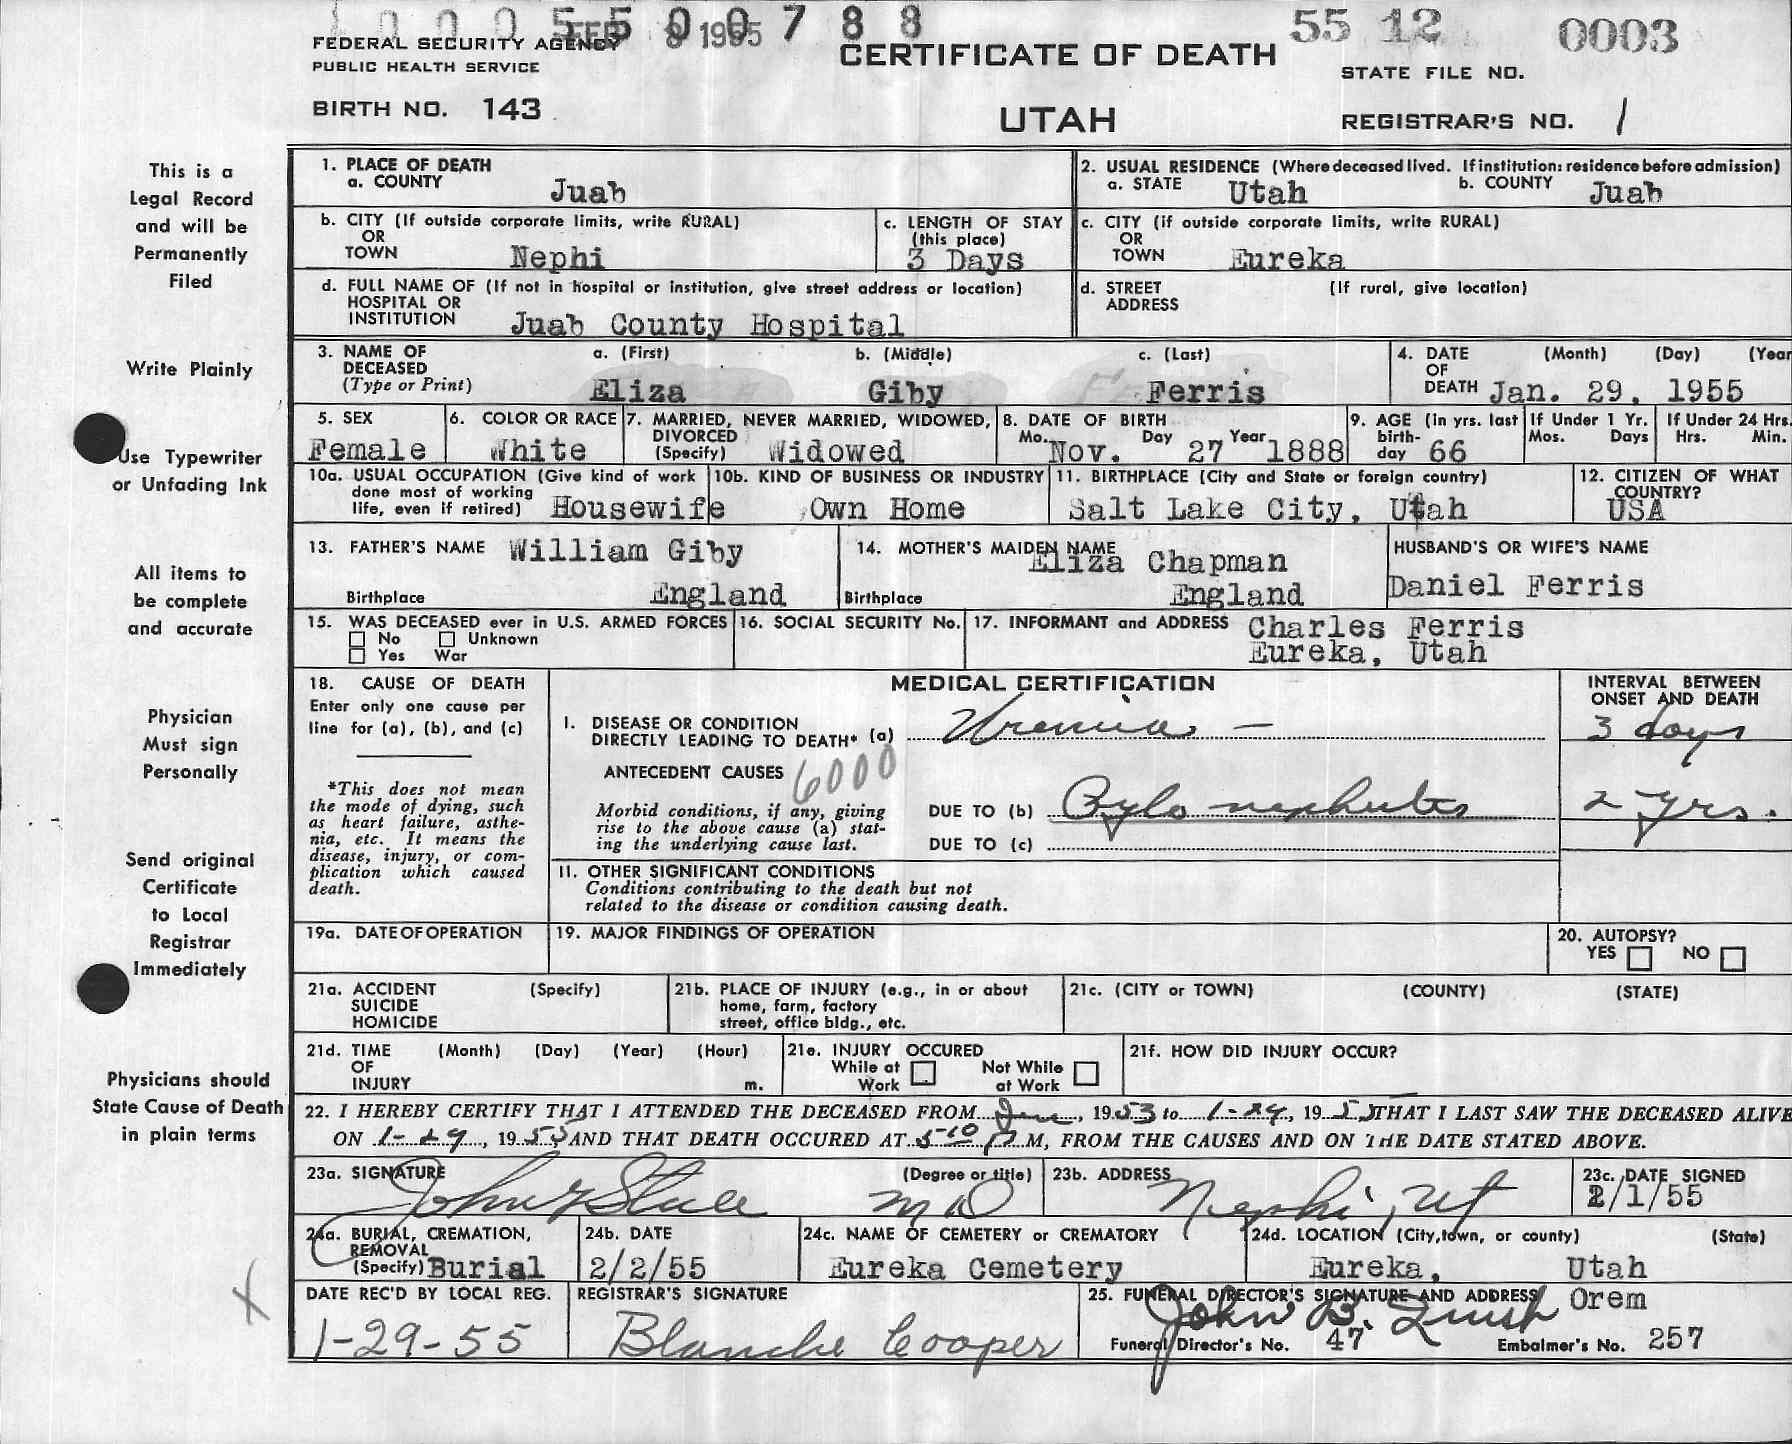 1000 5500788
FEB 8 1955
55 12 0003
FEDERAL SECURITY AGENCY
PUBLIC HEALTH SERVICE
CERTIFICATE OF DEATH
STATE FILE NO.
BIRTH NO. 143
UTAH
REGISTRAR'S NO. 1
This is a
Legal Record
and will be
Permanently
Filed
Write Plainly
Use Typewriter
or Unfading Ink
All items to
be complete
and accurate
Physician
Must sign
Personally
Send original
Certificate
to Local
Registrar
Immediately
Physicians should
State Cause of Death
in plain terms
1. PLACE OF DEATH
a. COUNTY Juab
2. USUAL RESIDENCE (Where deceased lived. If institution: residence before admission)
a. STATE Utah b. COUNTY Juab
b. CITY (If outside corporate limits, write RURAL)
OR
TOWN Nephi
c. LENGTH OF STAY
(this place)
3 Days
c. CITY (if outside corporate limits, write RURAL)
OR
TOWN Eureka
d. FULL NAME OF (If not in hospital or institution, give street address or location)
HOSPITAL OR
INSTITUTION Juab County Hospital
d. STREET (If rural, give location)
ADDRESS
3. NAME OF
DECEASED
(Type or Print)
a. (First) b. (Middle) c. (Last)
Eliza Giby Ferris
4. DATE (Month) (Day) (Year
OF
DEATH Jan. 29, 1955
5. SEX
Female
6. COLOR OR RACE
White
7. MARRIED, NEVER MARRIED, WIDOWED,
DIVORCED
(Specify) Widowed
8. DATE OF BIRTH
Mo. Day Year
Nov. 27 1888
9. AGE (In yrs. last
birth-
day 66
If Under 1 Yr.
Mos. Days
If Under 24 Hrs.
Hrs. Min.
10a. USUAL OCCUPATION (Give kind of work
done most of working
life, even if retired) Housewife
10b. KIND OF BUSINESS OR INDUSTRY
Own Home
11. BIRTHPLACE (City and State or foreign country)
Salt Lake City, Utah
12. CITIZEN OF WHAT
COUNTRY?
USA
13. FATHER'S NAME William Giby
Birthplace England
14. MOTHER'S MAIDEN NAME
Eliza Chapman
Birthplace England
HUSBAND'S OR WIFE'S NAME
Daniel Ferris
15. WAS DECEASED ever in U.S. ARMED FORCES
No Unknown
Yes War
16. SOCIAL SECURITY No.
17. INFORMANT and ADDRESS Charles Ferris
Eureka, Utah
18. CAUSE OF DEATH
Enter only one cause per
line for (a), (b), and (c)
*This does not mean
the mode of dying, such
as heart failure, asthe-
nia, etc. It means the
disease, injury, or com-
plication which caused
death.
MEDICAL CERTIFICATION
INTERVAL BETWEEN
ONSET AND DEATH
I. DISEASE OR CONDITION
DIRECTLY LEADING TO DEATH* (a) Uremia - 3 days
ANTECEDENT CAUSES 6000
Morbid conditions, if any, giving
rise to the above cause (a) stat-
ing the underlying cause last.
DUE TO (b) Pylo nephritis 2 yrs.
DUE TO (c)
II. OTHER SIGNIFICANT CONDITIONS
Conditions contributing to the death but not
related to the disease or condition causing death.
19a. DATE OF OPERATION
19. MAJOR FINDINGS OF OPERATION
20. AUTOPSY?
YES NO
21a. ACCIDENT (Specify)
SUICIDE
HOMICIDE
21b. PLACE OF INJURY (e.g., in or about
home, farm, factory
street, office bldg., etc.
21c. (CITY or TOWN) (COUNTY) (STATE)
21d. TIME (Month) (Day) (Year) (Hour)
OF
INJURY m.
21e. INJURY OCCURED
While at Work Not While at Work
21f. HOW DID INJURY OCCUR?
22. I HEREBY CERTIFY THAT I ATTENDED THE DECEASED FROM Jan, 1953 to 1-29, 1955 THAT I LAST SAW THE DECEASED ALIVE
ON 1-29, 1955 AND THAT DEATH OCCURED AT 5-10 P M, FROM THE CAUSES AND ON THE DATE STATED ABOVE.
23a. SIGNATURE (Degree or title)
John M D
23b. ADDRESS
Nephi, Ut
23c. DATE SIGNED
2/1/55
24a. BURIAL, CREMATION,
REMOVAL
(Specify) Burial
24b. DATE
2/2/55
24c. NAME OF CEMETERY OR CREMATORY
Eureka Cemetery
24d. LOCATION (City, town, or county) (State)
Eureka, Utah
X
DATE REC'D BY LOCAL REG.
1-29-55
REGISTRAR'S SIGNATURE
Blanche Cooper
25. FUNERAL DIRECTOR'S SIGNATURE AND ADDRESS Orem
John B.
Funeral Director's No. 47 Embalmer's No. 257